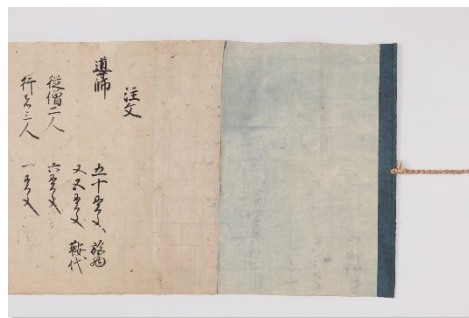 注文
導師 五十貫文
又五貫文 鞍代
従僧二人 六貫文
行者三人 一貫文